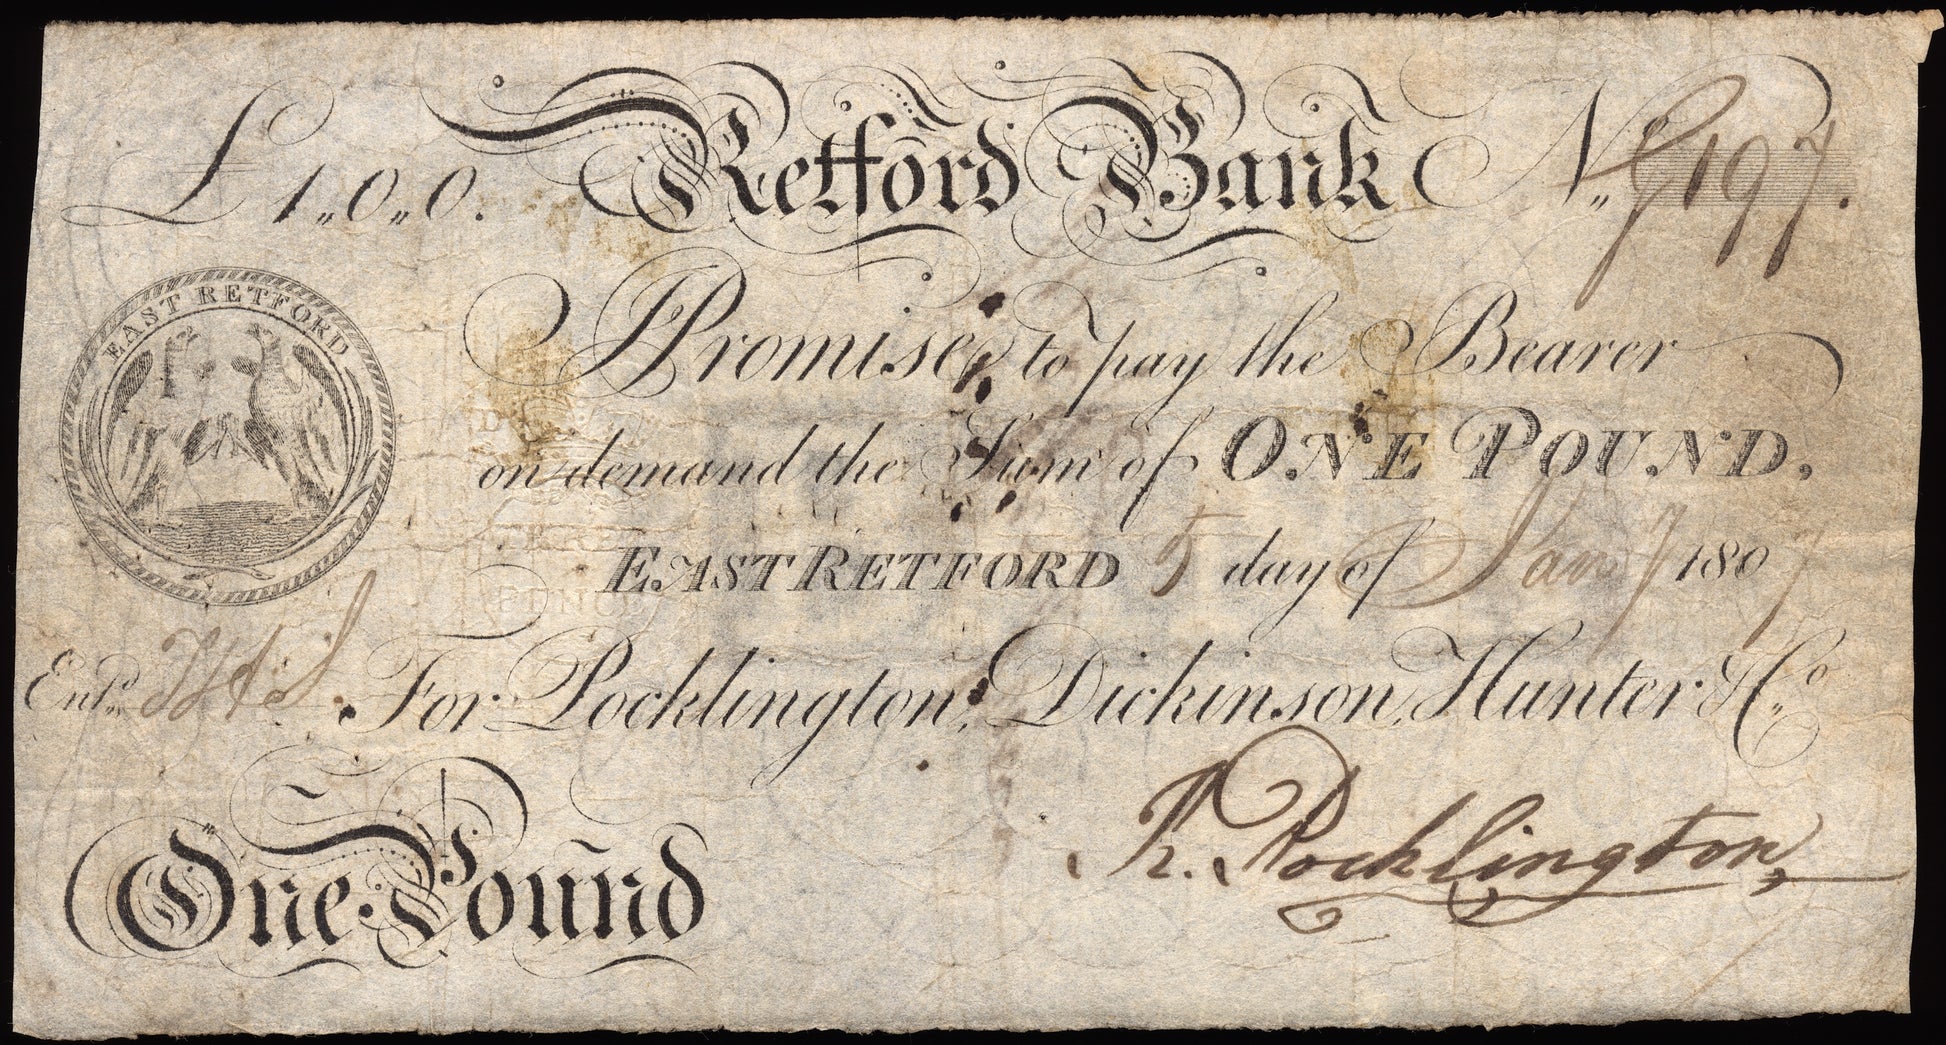 £1,,0,,0. Retford Bank N.,, 9197.
EAST RETFORD
I Promise to pay the Bearer
on demand the Sum of ONE POUND,
EAST RETFORD 5 day of Jany 1807
Entd.,, For Pocklington, Dickinson, Hunter & Co.
One Pound
R. Pocklington